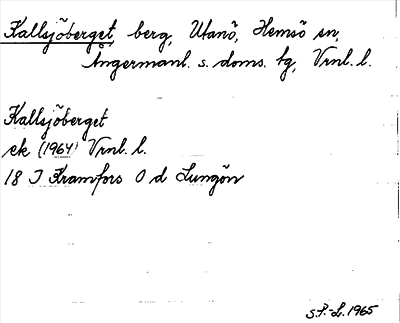 Kallsjöberget, berg, Utanö, Hemsö sn,
Ångermanl. s. doms. tg, Vrnl. l.
Kallsjöberget
ek (1964) Vrnl. l.
18 I Kramfors O d Lungön
S.P.-L. 1965